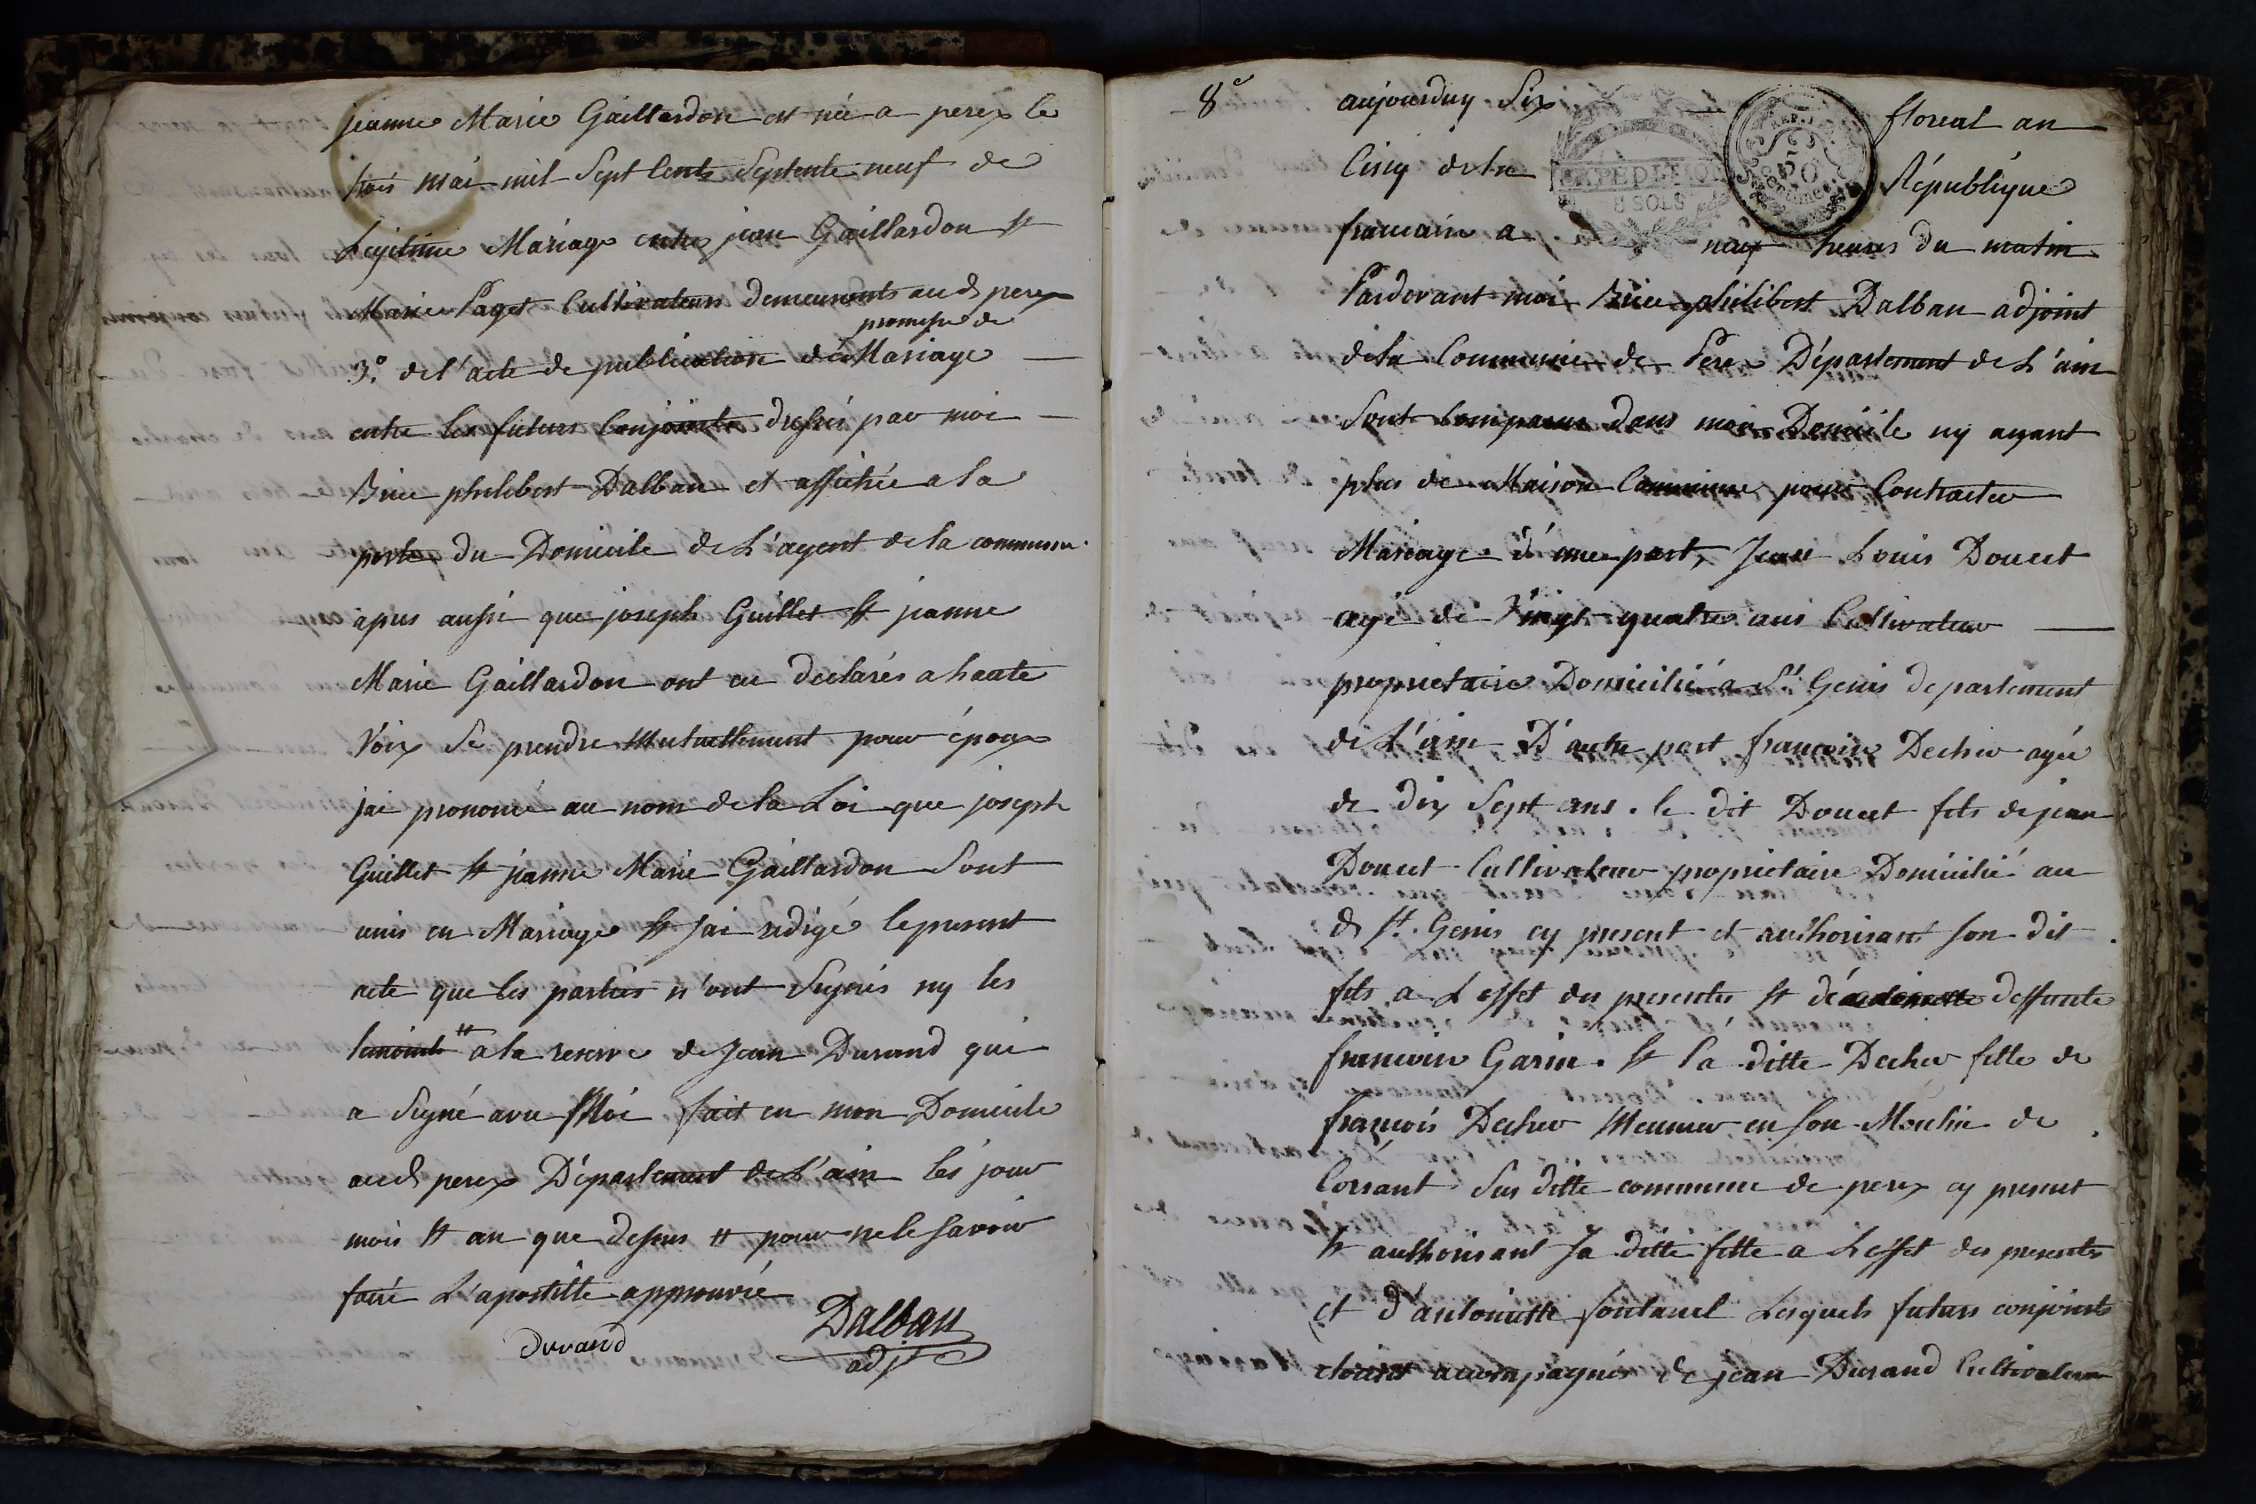 jeanne Marie Gaillardon est née a perex le
trois mai mil Sept Cents Septente neuf de
Legitime Mariage entre jean Gaillardon et
Marie Paget Cultivateurs demeurants aud perex
promesse de
3.º de l'acte de publication de Mariage
entre les futurs Conjoints dressée par moi
Brice philibert Dalban et affichée a la
porte du Domicile de L'agent de la commune
apres aussi que joseph Guillet et jeanne
Marie Gaillardon ont eu declarés a haute
Voix Se prendre Mutuellement pour époux
jai prononcé au nom de la Loi que joseph
Guillet et jeanne Marie Gaillardon Sont
unis en Mariage et Jai redigé le present
acte que les parties n'ont Signés ny les
# a la reserve de Jean Durand qui
a Signé avec Moi fait en mon Domicile
aud perex Département de L'ain les jour
mois et an que dessus # pour ne le Savoir
faire L'apostille approuvée
Durand Dalban
adjt
8e aujourduy Six floreal an
Cinq de la République
EXPEDITION
8 SOLS
REP. FRA.
50
centimes
francaise a neuf heures du matin
Pardevant moi Brice philibert Dalban adjoint
de la Commune de Perex Département de L'ain
Sont Comparus dans mon Domicile ny ayant
plus de Maison Commune pour Contracter
Mariage d'une part, Jean Louis Doucet
agé de Vingt quatre ans Cultivateur
proprietaire Domicilié a St Genis departement
de L'ain D'autre part francoise Decher agée
de dix Sept ans. le dit Doucet fils de jean
Doucet Cultivateur proprietaire Domicilié au
d St. Genis cy present et authorisant son dit
fils a L effet des presentes et de deffunte
francoise Garin. et la ditte Decher fille de
françois Decher Meunier en son Moulin de
Corsant Sus ditte commune de perex cy present
et authorisant Sa ditte fille a L effet des presentes
et d'antoinette fontanel Lesquels futurs conjoints
etoient accompagnés de jean Durand Cultivateur